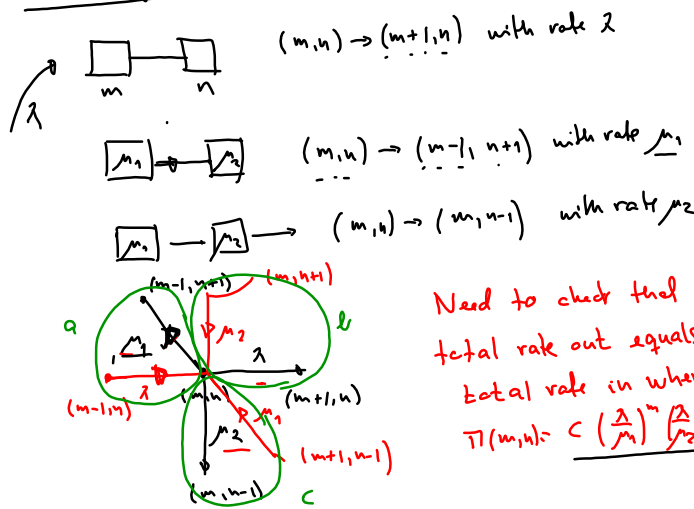 (m,n) → (m+1,n) with rate λ
m n
λ
μ1 μ2 (m,n) → (m-1, n+1) with rate μ1
μ1 μ2 (m,n) → (m,n-1) with rate μ2
(m-1,n+1) (m,n+1)
a b
μ1 μ2 λ
λ (m,n) (m+1,n)
(m-1,n) μ1
μ2 (m+1,n-1)
(m,n-1) c
Need to check that
total rate out equals
total rate in when
π(m,n) = C (λ/μ1)^m (λ/μ2